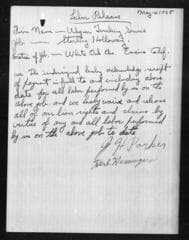 May 10 1955
Labor Release
Firm Name - Wayne Trucking Service
of Job - Sterling Holloway
of Job - White Oak Ave Encino Calif
We the undersigned hereby acknowledge receipt
of payment in full to and including above
date for all labor performed by us on the
above job. and we hereby waive and release
all of our lien rights and claims by
virtue of any and all labor performed
by us on the above job to date
J H Parker